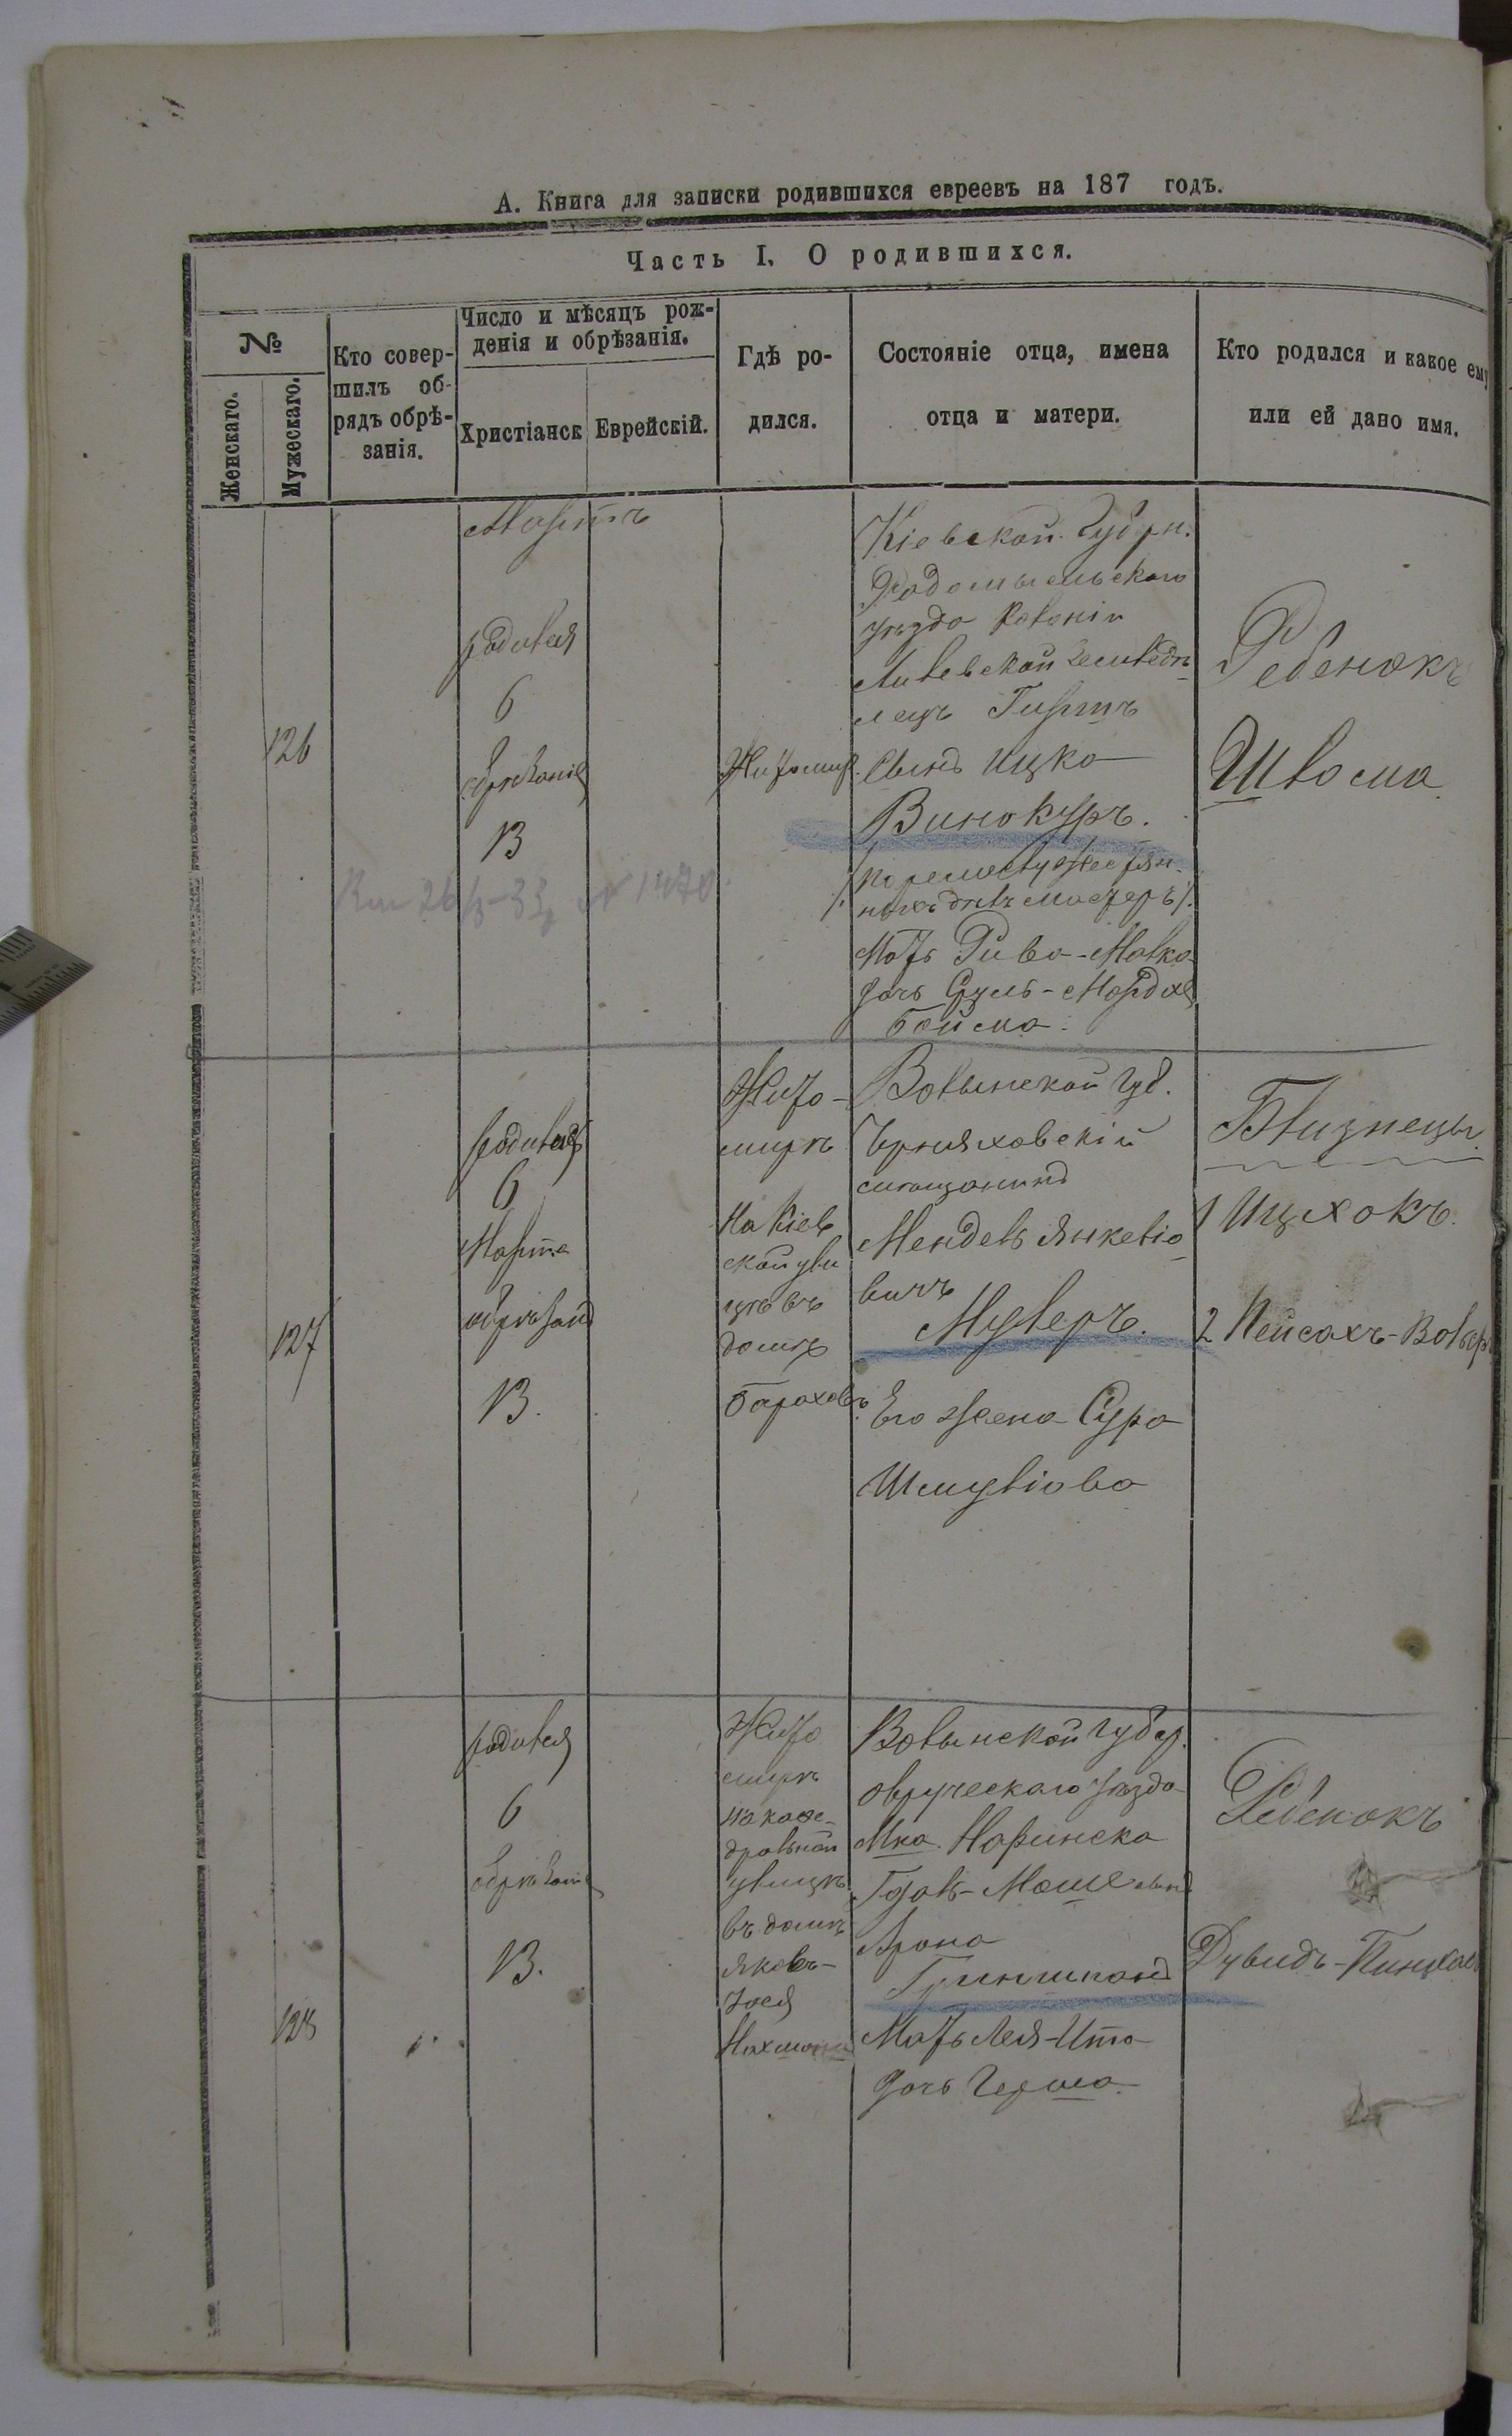 А. Книга для записки родившихся евреевъ на 187 годъ.
Часть I. О родившихся.
№
Женскаго.
Мужескаго.
Кто совер-
шилъ об-
рядъ обрѣ-
занія.
Число и мѣсяцъ рож-
денія и обрѣзанія.
Христіанск
Еврейскій.
Гдѣ ро-
дился.
Состояніе отца, имена
отца и матери.
Кто родился и какое ему
или ей дано имя.
126
Мартъ
родился
6
обрѣзаніе
13
Житомир.
Кіевской Губерн.
Радомысльскаго
уѣзда Колоніи
земледѣ-
лецъ Гиршъ
Сынъ Ицка
Винокуръ.
мастеръ
Мать Рива-Малка
дочь Сруль-Мордхе
Бойма.
Ребенокъ
Шлома
127
родился
6
Марта
обрѣзанъ
13.
Жито-
миръ
На Кіев
ской ули
цѣ въ
домѣ
Бараховъ.
Волынской Губ.
Черняховскій
мѣщанинъ
Мендель Янкеліо
вичъ
Мулеръ.
Его жена Сура
Шмуліова
Близнецы
1 Ицхокъ.
2 Пейсахъ-Вольф
128
родился
6
обрѣзаніе
13.
Жито
миръ
на Каѳе-
дральной
улицѣ
въ домѣ
Яковъ-
Нахмана
Волынской Губер.
Овручскаго уѣзда
Мка Наринска
Мошe сынъ
Арона
Гриншпанъ
Мать Лея-Ита
дочь Герша.
Ребенокъ
Дувидъ-Пинхас